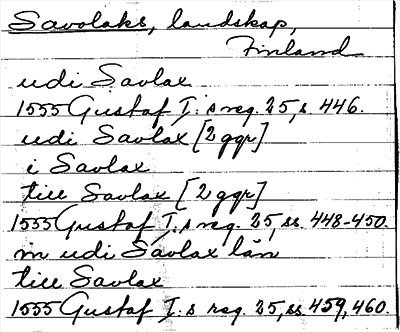 Savolaks, landskap,
Finland
udi Savlax
1555 Gustaf I:s reg. 25, s. 446.
udi Savlax [2 ggr]
i Savlax
till Savlax [2 ggr]
1555 Gustaf I:s reg. 25, ss. 448-450.
m udi Savlax län
till Savlax
1555 Gustaf I:s reg. 25, ss. 459, 460.